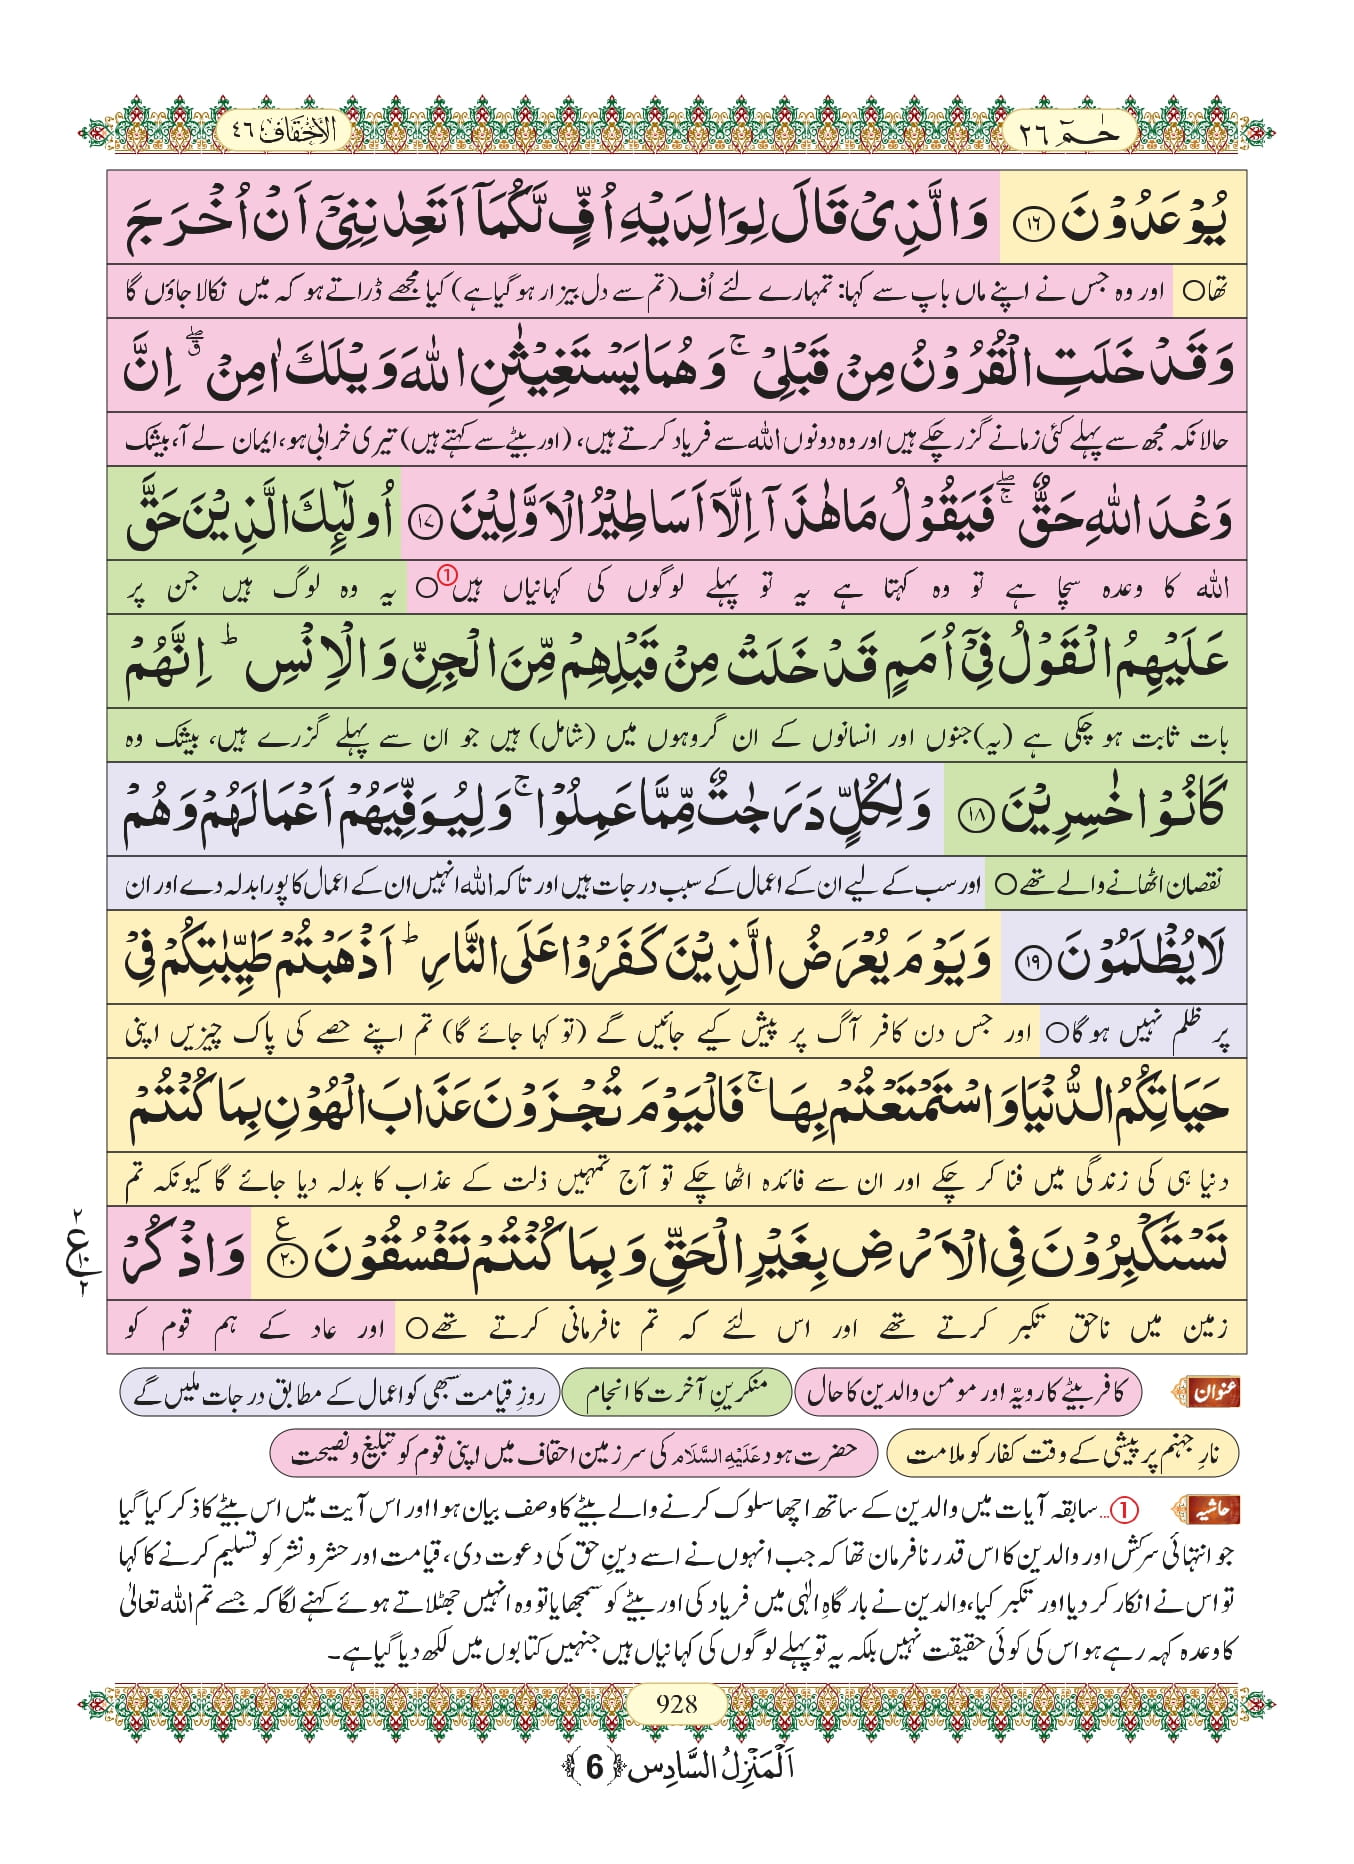 حٰمٓ ٢٦
الاحقاف ٤٦
يُوْعَدُوْنَ ﴿١٦﴾ وَالَّذِيْ قَالَ لِوَالِدَيْهِ اُفٍّ لَّكُمَاۤ اَتَعِدٰنِنِيْۤ اَنْ اُخْرَجَ
تھا○ اور وہ جس نے اپنے ماں باپ سے کہا: تمہارے لئے اُف(تم سے دل بیزار ہو گیا ہے) کیا مجھے ڈراتے ہو کہ میں نکالا جاؤں گا
وَقَدْ خَلَتِ الْقُرُوْنُ مِنْ قَبْلِيْ ۚ وَهُمَا يَسْتَغِيْثٰنِ اللّٰهَ وَيْلَكَ اٰمِنْ ۖۗ اِنَّ
حالانکہ مجھ سے پہلے کئی زمانے گزر چکے ہیں اور وہ دونوں اللہ سے فریاد کرتے ہیں، (اور بیٹے سے کہتے ہیں) تیری خرابی ہو، ایمان لے آ، بیشک
وَعْدَ اللّٰهِ حَقٌّ ۚۖ فَيَقُوْلُ مَا هٰذَاۤ اِلَّاۤ اَسَاطِيْرُ الْاَوَّلِيْنَ ﴿١٧﴾ اُولٰٓئِكَ الَّذِيْنَ حَقَّ
اللہ کا وعدہ سچا ہے تو وہ کہتا ہے یہ تو پہلے لوگوں کی کہانیاں ہیں①○ یہ وہ لوگ ہیں جن پر
عَلَيْهِمُ الْقَوْلُ فِيْۤ اُمَمٍ قَدْ خَلَتْ مِنْ قَبْلِهِمْ مِّنَ الْجِنِّ وَالْاِنْسِ ؕ اِنَّهُمْ
بات ثابت ہو چکی ہے (یہ)جنوں اور انسانوں کے ان گروہوں میں (شامل) ہیں جو ان سے پہلے گزرے ہیں، بیشک وہ
كَانُوْا خٰسِرِيْنَ ﴿١٨﴾ وَلِكُلٍّ دَرَجٰتٌ مِّمَّا عَمِلُوْا ۚ وَلِيُوَفِّيَهُمْ اَعْمَالَهُمْ وَهُمْ
نقصان اٹھانے والے تھے○ اور سب کے لیے ان کے اعمال کے سبب درجات ہیں اور تاکہ اللہ انہیں ان کے اعمال کا پورا بدلہ دے اور ان
لَا يُظْلَمُوْنَ ﴿١٩﴾ وَيَوْمَ يُعْرَضُ الَّذِيْنَ كَفَرُوْا عَلَى النَّارِ ؕ اَذْهَبْتُمْ طَيِّبٰتِكُمْ فِيْ
پر ظلم نہیں ہوگا○ اور جس دن کافر آگ پر پیش کیے جائیں گے (تو کہا جائے گا) تم اپنے حصے کی پاک چیزیں اپنی
حَيَاتِكُمُ الدُّنْيَا وَاسْتَمْتَعْتُمْ بِهَا ۚ فَالْيَوْمَ تُجْزَوْنَ عَذَابَ الْهُوْنِ بِمَا كُنْتُمْ
دنیا ہی کی زندگی میں فنا کر چکے اور ان سے فائدہ اٹھا چکے تو آج تمہیں ذلت کے عذاب کا بدلہ دیا جائے گا کیونکہ تم
تَسْتَكْبِرُوْنَ فِي الْاَرْضِ بِغَيْرِ الْحَقِّ وَبِمَا كُنْتُمْ تَفْسُقُوْنَ ﴿٢٠﴾ ع وَاذْكُرْ
٢ ع ٢
زمین میں ناحق تکبر کرتے تھے اور اس لئے کہ تم نافرمانی کرتے تھے○ اور عاد کے ہم قوم کو
عنوان کافر بیٹے کا رویّہ اور مومن والدین کا حال منکرینِ آخرت کا انجام روزِ قیامت سبھی کو اعمال کے مطابق درجات ملیں گے
نارِ جہنم پر پیشی کے وقت کفار کو ملامت حضرت ہود عَلَیْہِ السَّلَام کی سرزمین احقاف میں اپنی قوم کو تبلیغ و نصیحت
حاشیہ ①... سابقہ آیات میں والدین کے ساتھ اچھا سلوک کرنے والے بیٹے کا وصف بیان ہوا اور اس آیت میں اس بیٹے کا ذکر کیا گیا
جو انتہائی سرکش اور والدین کا اس قدر نافرمان تھا کہ جب انہوں نے اسے دینِ حق کی دعوت دی، قیامت اور حشر و نشر کو تسلیم کرنے کا کہا
تو اس نے انکار کر دیا اور تکبر کیا، والدین نے بارگاہِ الٰہی میں فریاد کی اور بیٹے کو سمجھایا تو وہ انہیں جھٹلاتے ہوئے کہنے لگا کہ جسے تم اللہ تعالیٰ
کا وعدہ کہہ رہے ہو اس کی کوئی حقیقت نہیں بلکہ یہ تو پہلے لوگوں کی کہانیاں ہیں جنہیں کتابوں میں لکھ دیا گیا ہے۔
928
اَلْمَنْزِلُ السَّادِس ﴿6﴾